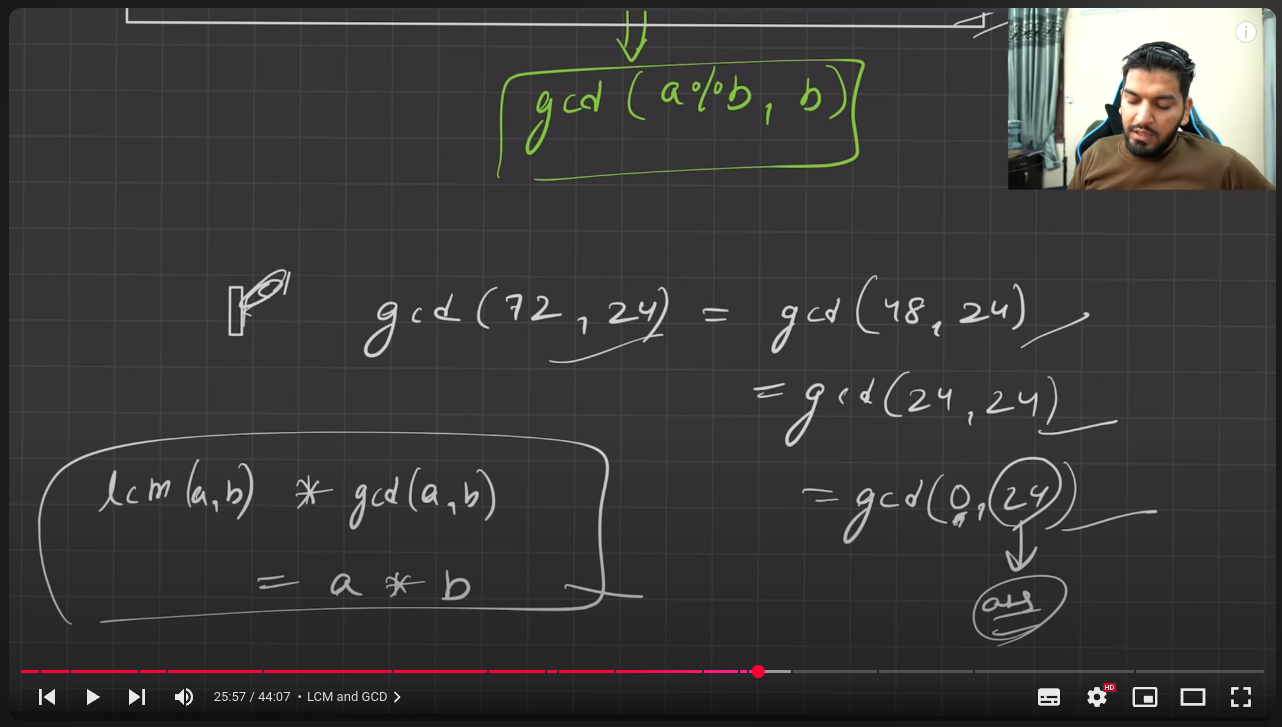 gcd (a%b, b)
gcd (72, 24) = gcd (48, 24)
= gcd (24, 24)
= gcd (0, 24)
ans
lcm (a, b) * gcd (a, b)
= a * b
25:57 / 44:07 • LCM and GCD
HD